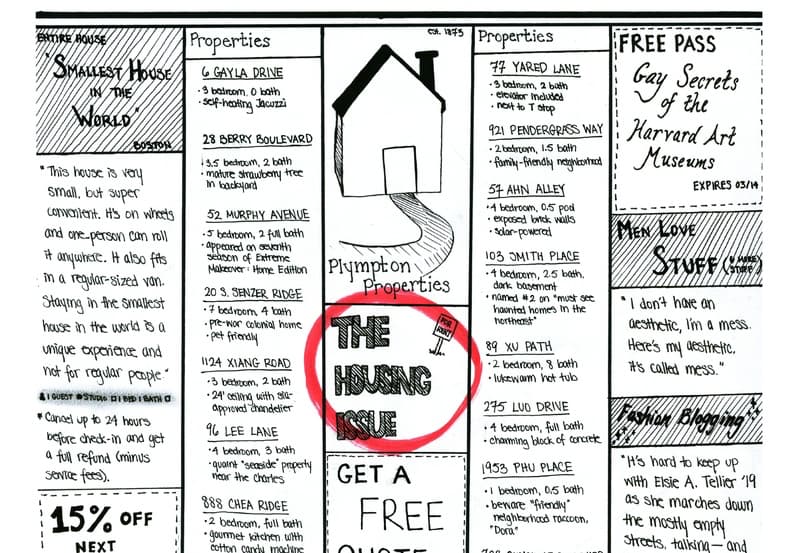 ENTIRE HOUSE
"SMALLEST HOUSE
IN THE
WORLD"
BOSTON
"This house is very
small, but super
convenient. It's on wheels
and one person can roll
it anywhere. It also fits
in a regular-sized van.
Staying in the smallest
house in the world is a
unique experience and
not for regular people"
& 1 GUEST # STUDIO □ 1 BED 1 BATH □
* Cancel up to 24 hours
before check-in and get
a full refund (minus
service fees).
15% OFF
NEXT
Properties
6 GAYLA DRIVE
• 3 bedroom, 0 bath
• self-heating Jacuzzi
28 BERRY BOULEVARD
• 3.5 bedroom, 2 bath
• mature strawberry tree
in backyard
52 MURPHY AVENUE
• 5 bedroom, 2 full bath
• appeared on seventh
season of Extreme
Makeover: Home Edition
20 S. SENZER RIDGE
• 7 bedroom, 4 bath
• pre-war colonial home
• pet friendly
1124 XIANG ROAD
• 3 bedroom, 2 bath
• 24' ceiling with
approved chandelier
96 LEE LANE
• 4 bedroom, 3 bath
• quaint "seaside" property
near the Charles
888 CHEA RIDGE
• 2 bedroom, full bath
• gourmet kitchen with
cotton candy machine
EST. 1873
Plympton
Properties
THE
HOUSING
ISSUE
FOR
RENT
GET A
FREE
QUOTE
Properties
77 YARED LANE
• 3 bedroom, 2 bath
• elevator included
• next to T stop
921 PENDERGRASS WAY
• 2 bedroom, 1.5 bath
• family-friendly neighborhood
57 AHN ALLEY
• 4 bedroom, 0.5 pod
• exposed brick walls
• solar-powered
103 SMITH PLACE
• 4 bedroom, 2.5 bath,
dark basement
• named #2 on "must see
haunted homes in the
northeast"
89 XU PATH
• 2 bedroom, 8 bath
• lukewarm hot tub
275 LUO DRIVE
• 4 bedroom, full bath
• charming block of concrete
1953 PHU PLACE
• 1 bedroom, 0.5 bath
• beware "friendly"
neighborhood raccoon,
"Dora"
FREE PASS
Gay Secrets
of the
Harvard Art
Museums
EXPIRES 03/14
MEN LOVE
STUFF (& MORE
STUFF)
"I don't have an
aesthetic, I'm a mess.
Here's my aesthetic.
It's called mess."
Fashion Blogging
"It's hard to keep up
with Elsie A. Tellier '19
as she marches down
the mostly empty
streets, talking— and